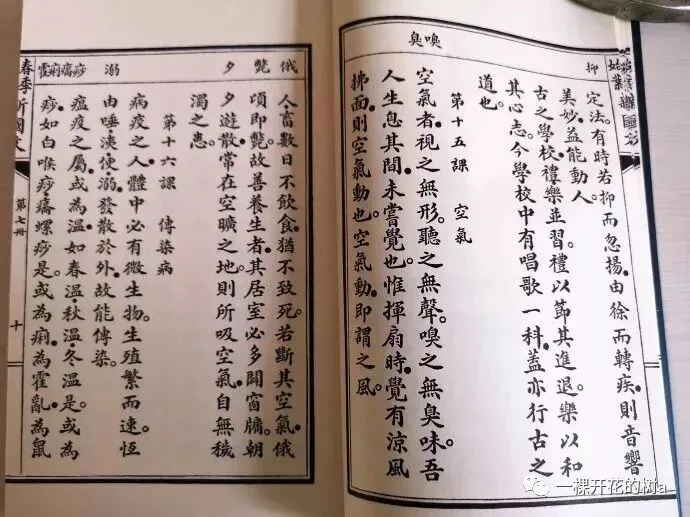 嗅臭
抑
定法。有時若抑而忽揚。由徐而轉疾。則音響
美妙。益能動人。
古之學校。禮樂並習。禮以節其進退。樂以和
其心志。今學校中有唱歌一科。蓋亦行古之
道也。
第十五課 空氣
空氣者。視之無形。聽之無聲。嗅之無臭味。吾
人生息其間。未嘗覺也。惟揮扇時。覺有涼風
拂面。則空氣動也。空氣動。即謂之風。
俄
斃
夕
溺
痧癟痢霍
人畜數日不飲食。猶不致死。若斷其空氣。俄
頃即斃。故善養生者。其居室必多闢窗牖。朝
夕遊散。常在空曠之地。則所吸空氣。自無穢
濁之患。
第十六課 傳染病
病疫之人。體中必有微生物。生殖繁而速。恆
由唾洟便溺。發散於外。故能傳染。
瘟疫之屬。或為溫。如春溫秋溫冬溫是。或為
痧。如白喉痧癟螺痧是。或為痢。為霍亂。為鼠
春季新國文
第七冊
十
一棵开花的树a